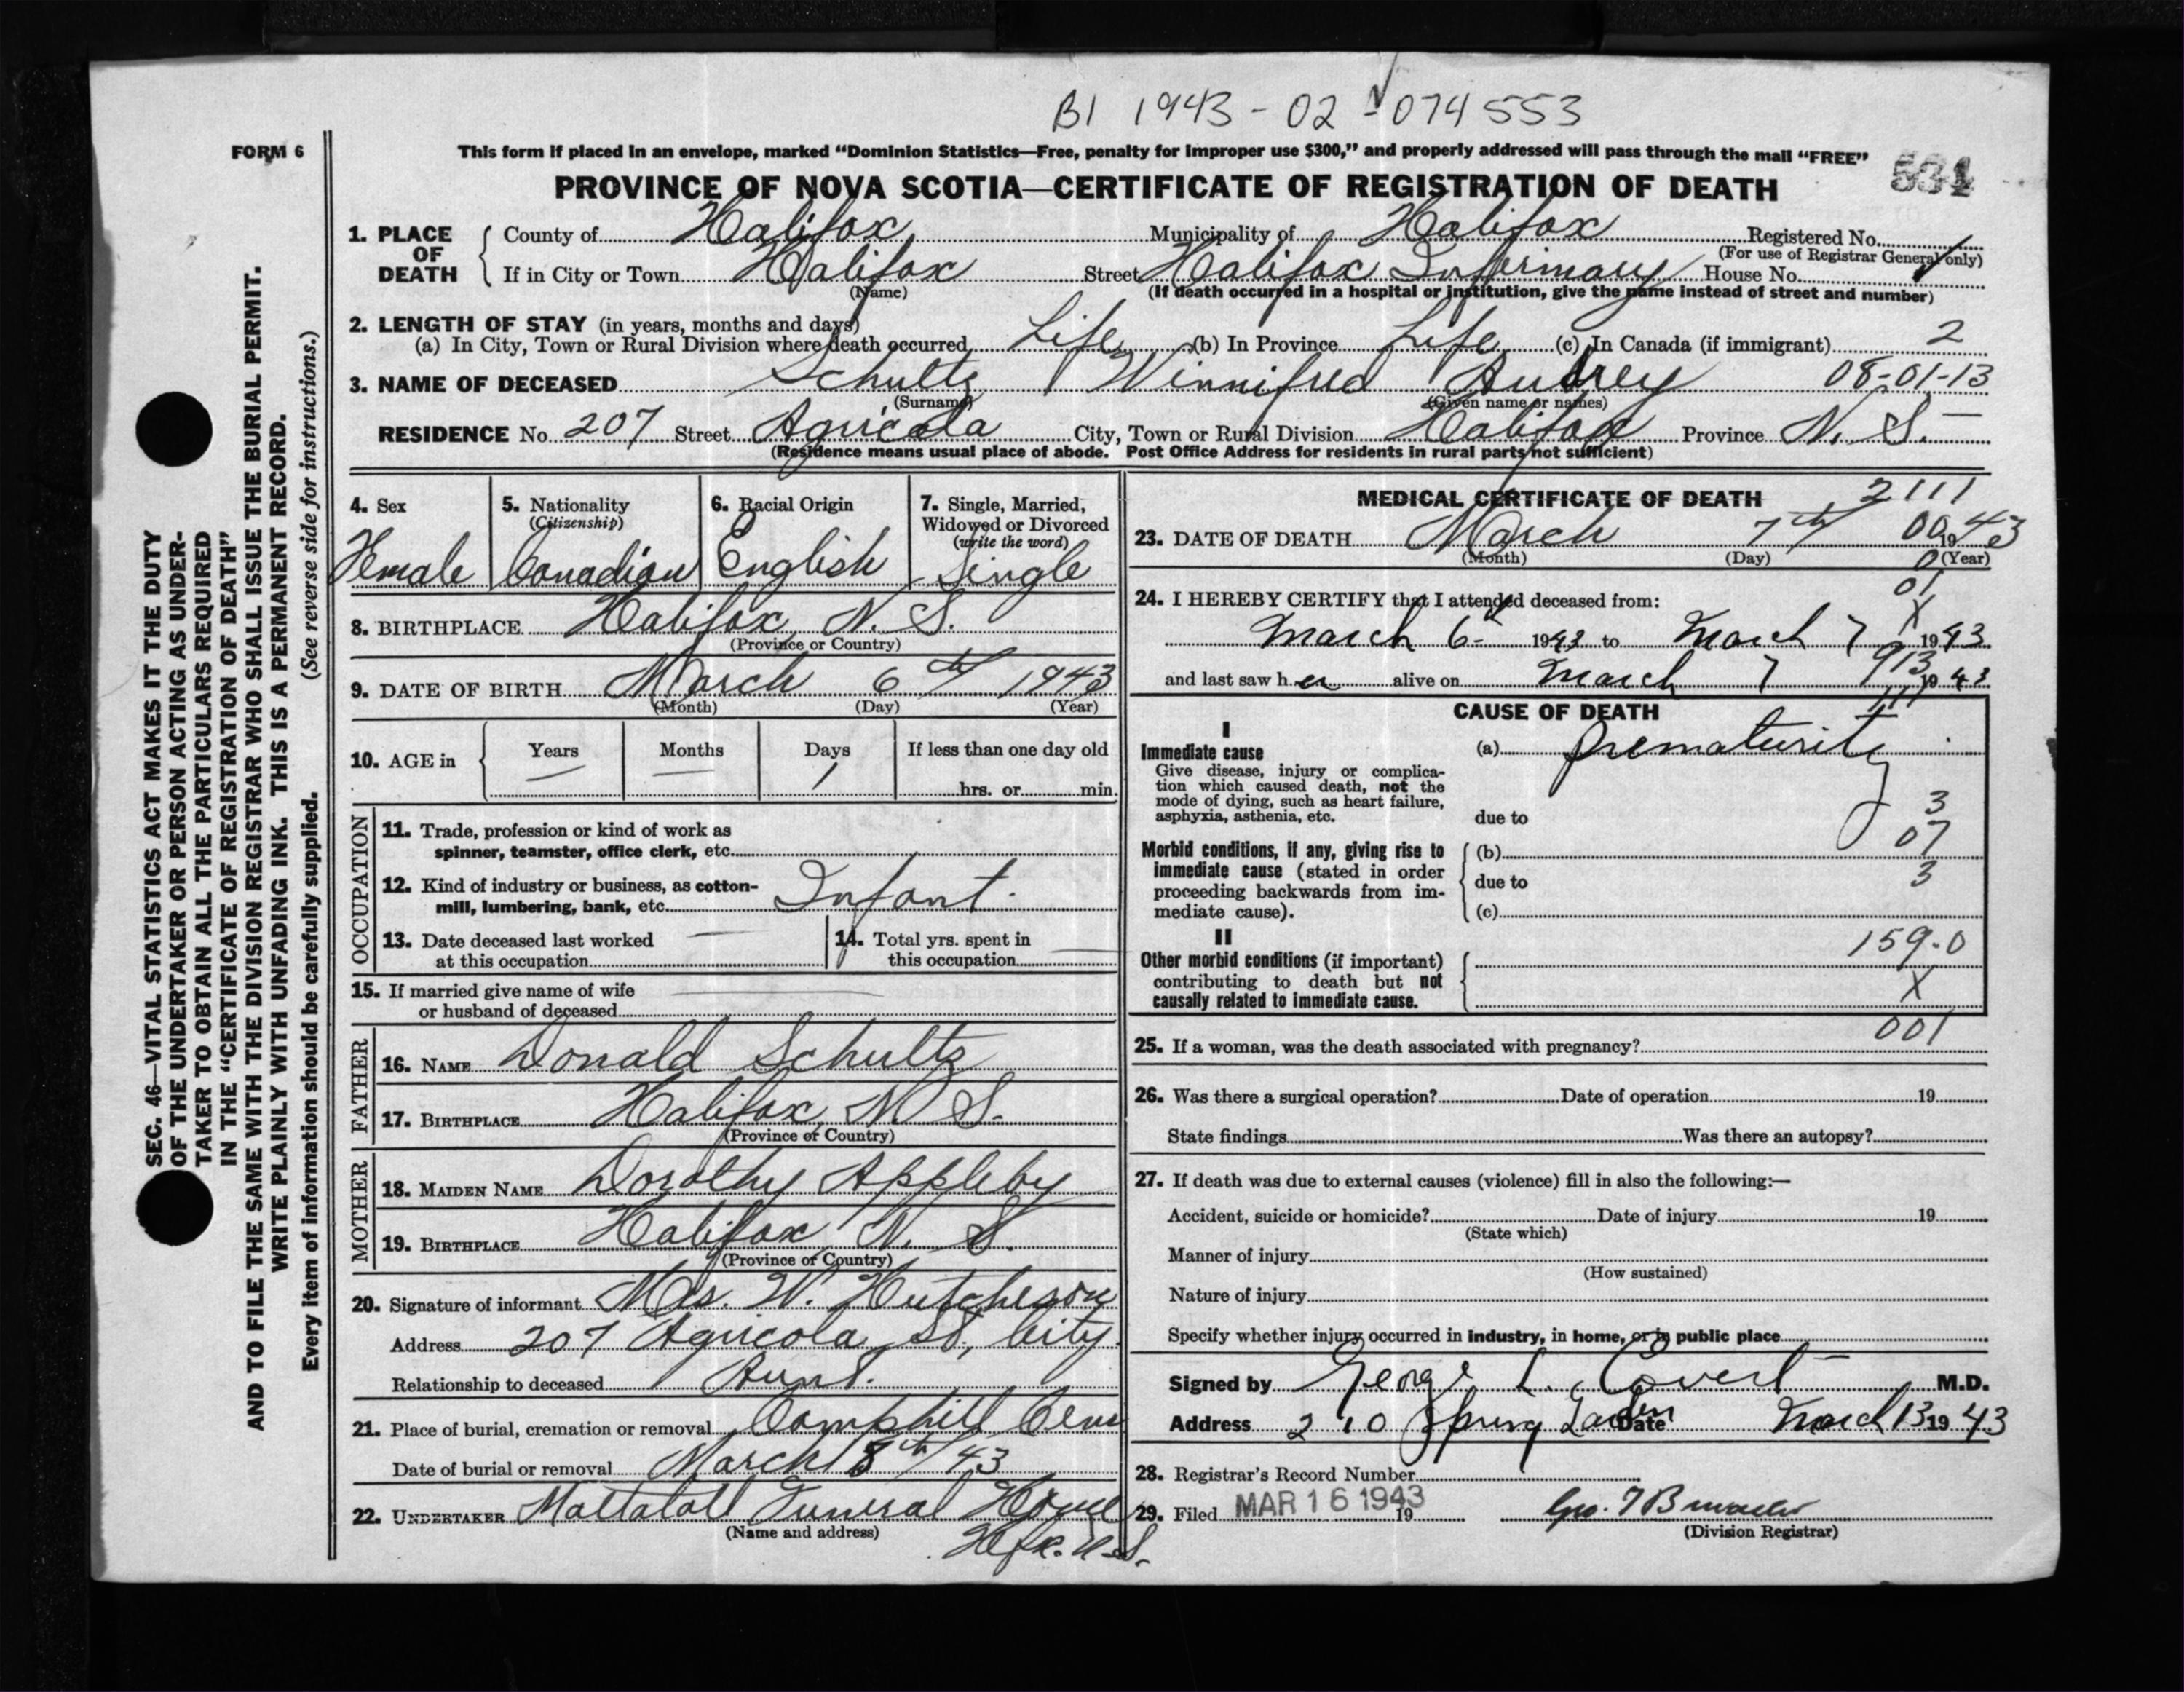 B1 1943-02-074553
FORM 6
This form if placed in an envelope, marked “Dominion Statistics—Free, penalty for improper use $300,” and properly addressed will pass through the mail “FREE”
PROVINCE OF NOVA SCOTIA—CERTIFICATE OF REGISTRATION OF DEATH
1. PLACE OF DEATH
County of Halifax Municipality of Halifax Registered No.
(For use of Registrar General only)
If in City or Town Halifax Street Halifax Infirmary House No.
(Name) (If death occurred in a hospital or institution, give the name instead of street and number)
2. LENGTH OF STAY (in years, months and days)
(a) In City, Town or Rural Division where death occurred Life (b) In Province Life (c) In Canada (if immigrant) 2
3. NAME OF DECEASED Schultz Winnifred Audrey 08-01-13
(Surname) (Given name or names)
RESIDENCE No. 207 Street Agricola City, Town or Rural Division Halifax Province N. S.
(Residence means usual place of abode. Post Office Address for residents in rural parts not sufficient)
4. Sex
Female
5. Nationality
(Citizenship)
Canadian
6. Racial Origin
English
7. Single, Married,
Widowed or Divorced
(write the word)
Single
8. BIRTHPLACE Halifax, N. S.
(Province or Country)
9. DATE OF BIRTH March 6th 1943
(Month) (Day) (Year)
10. AGE in
Years Months Days If less than one day old
— — 1
hrs. or min.
OCCUPATION
11. Trade, profession or kind of work as
spinner, teamster, office clerk, etc.
12. Kind of industry or business, as cotton-
mill, lumbering, bank, etc. Infant.
13. Date deceased last worked
at this occupation —
14. Total yrs. spent in
this occupation —
15. If married give name of wife
or husband of deceased —
FATHER
16. NAME Donald Schultz
17. BIRTHPLACE Halifax, N. S.
(Province or Country)
MOTHER
18. MAIDEN NAME Dorothy Appleby
19. BIRTHPLACE Halifax N. S.
(Province or Country)
20. Signature of informant Mrs. W. Hutcheson
Address 207 Agricola St., City.
Relationship to deceased Aunt.
21. Place of burial, cremation or removal Camphill Cem
Date of burial or removal March 8th/43
22. UNDERTAKER Mattatall Funeral Home
(Name and address) Hfx. N.S.
MEDICAL CERTIFICATE OF DEATH 2111
23. DATE OF DEATH March 7th 00 1943
(Month) (Day) 0 (Year)
01
24. I HEREBY CERTIFY that I attended deceased from:
X
March 6th 1943 to March 7 1943
913
and last saw her alive on March 7 1943
111
CAUSE OF DEATH
I
Immediate cause
Give disease, injury or complica-
tion which caused death, not the
mode of dying, such as heart failure,
asphyxia, asthenia, etc.
(a) prematurity
3
due to
07
Morbid conditions, if any, giving rise to
immediate cause (stated in order
proceeding backwards from im-
mediate cause).
(b)
3
due to
(c)
II
159.0
Other morbid conditions (if important)
contributing to death but not
causally related to immediate cause.
X
001
25. If a woman, was the death associated with pregnancy?
26. Was there a surgical operation? Date of operation 19
State findings Was there an autopsy?
27. If death was due to external causes (violence) fill in also the following:—
Accident, suicide or homicide? Date of injury 19
(State which)
Manner of injury
(How sustained)
Nature of injury
Specify whether injury occurred in industry, in home, or in public place
Signed by George L. Covert M.D.
Address 210 Spring Garden Date March 13 1943
28. Registrar's Record Number
29. Filed MAR 16 1943 19
(Division Registrar)
SEC. 46—VITAL STATISTICS ACT MAKES IT THE DUTY
OF THE UNDERTAKER OR PERSON ACTING AS UNDER-
TAKER TO OBTAIN ALL THE PARTICULARS REQUIRED
IN THE “CERTIFICATE OF REGISTRATION OF DEATH”
AND TO FILE THE SAME WITH THE DIVISION REGISTRAR WHO SHALL ISSUE THE BURIAL PERMIT.
WRITE PLAINLY WITH UNFADING INK. THIS IS A PERMANENT RECORD.
Every item of information should be carefully supplied. (See reverse side for instructions.)